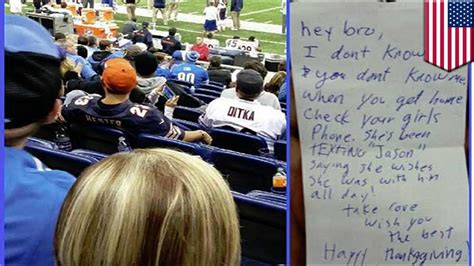 HESTER
23
DITKA
hey bro,
I dont know
& you dont know me,
when you get home
Check your girls
Phone. She's been
TEXTING "Jason"
saying she wishes
she was with him
all day!
take care
wish you
the best
Happy thanksgiving